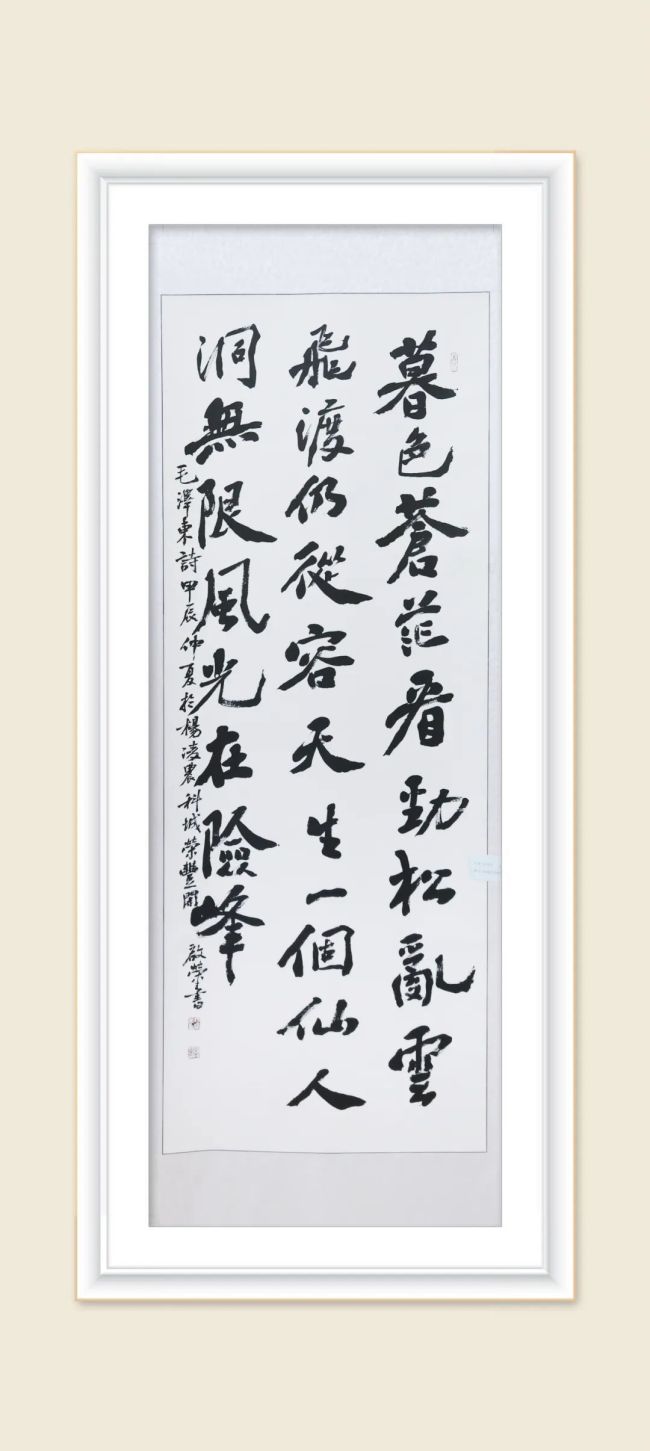 暮色蒼茫看勁松亂雲
飛渡仍從容天生一個仙人
洞無限風光在險峰
毛澤東詩甲辰仲夏於楊凌農科城榮豐閣
啟榮書